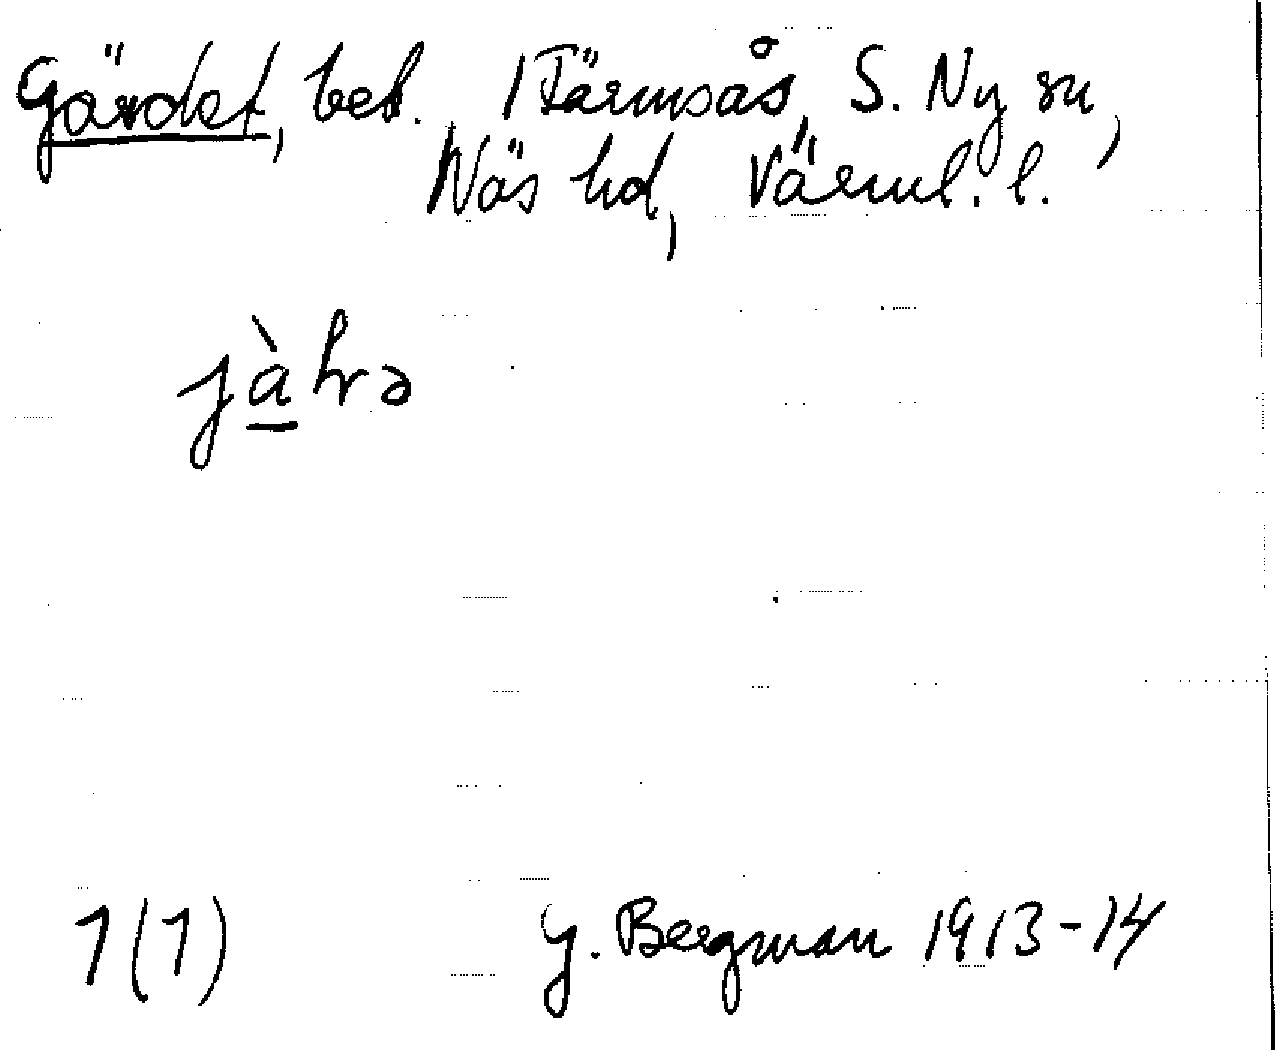 Gärdet, beb. 1 Färmsås, S. Ny sn,
Näs hd, Värml. l.
jàhrə
1(1) G. Bergman 1913-14